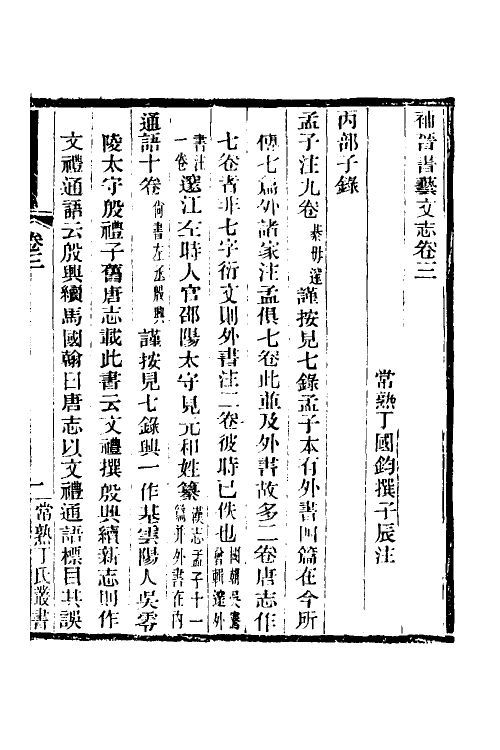 補晉書藝文志卷三
常熟丁國鈞撰子辰注
丙部子錄
孟子注九卷綦毋邃謹按見七錄孟子本有外書四篇在今所
傳七篇外諸家注孟俱七卷此並及外書故多二卷唐志作
七卷者非七字衍文則外書注二卷彼時已佚也國朝吳騫曾輯邃外
書注一卷邃江左時人官邵陽太守見元和姓纂漢志孟子十一篇并外書在內
通語十卷尚書左丞殷興謹按見七錄興一作基雲陽人吳零
陵太守殷禮子舊唐志載此書云文禮撰殷興續新志則作
文禮通語云殷興續馬國翰曰唐志以文禮通語標目其誤
卷三
一
常熟丁氏叢書